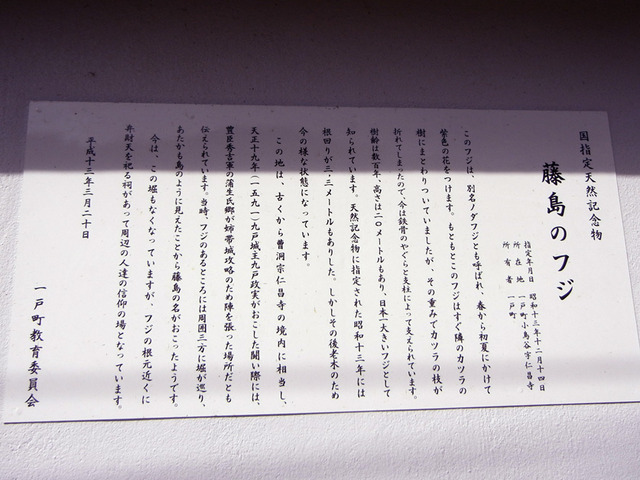 国指定天然記念物
藤島のフジ
指定年月日 昭和十三年十二月十四日
所在地 一戸町小鳥谷字仁昌寺
所有者 一戸町
このフジは、別名ノダフジとも呼ばれ、春から初夏にかけて
紫色の花をつけます。もともとこのフジはすぐ隣のカツラの
樹にまとわりついていましたが、その重みでカツラの枝が
折れてしまったので、今は鉄骨のやぐらと支柱によって支えられています。
樹齢は数百年、高さは二〇メートルもあり、日本一大きいフジとして
知られています。天然記念物に指定された昭和十三年には
根回りが三・三メートルもありました。しかしその後老木のため
今の様な状態になっています。
この地は、古くから曹洞宗仁昌寺の境内に相当し、
天正十九年(一五九一)九戸城主九戸政実がおこした闘い際には、
豊臣秀吉軍の蒲生氏郷が姉帯城攻略のため陣を張った場所だとも
伝えられています。当時、フジのあるところには周囲三方に堀が巡り、
あたかも島のように見えたことから藤島の名がおこったようです。
今は、この堀もなくなっていますが、フジの根元近くに
弁財天を祀る祠があって周辺の人達の信仰の場となっています。
平成十三年三月二十日
一戸町教育委員会